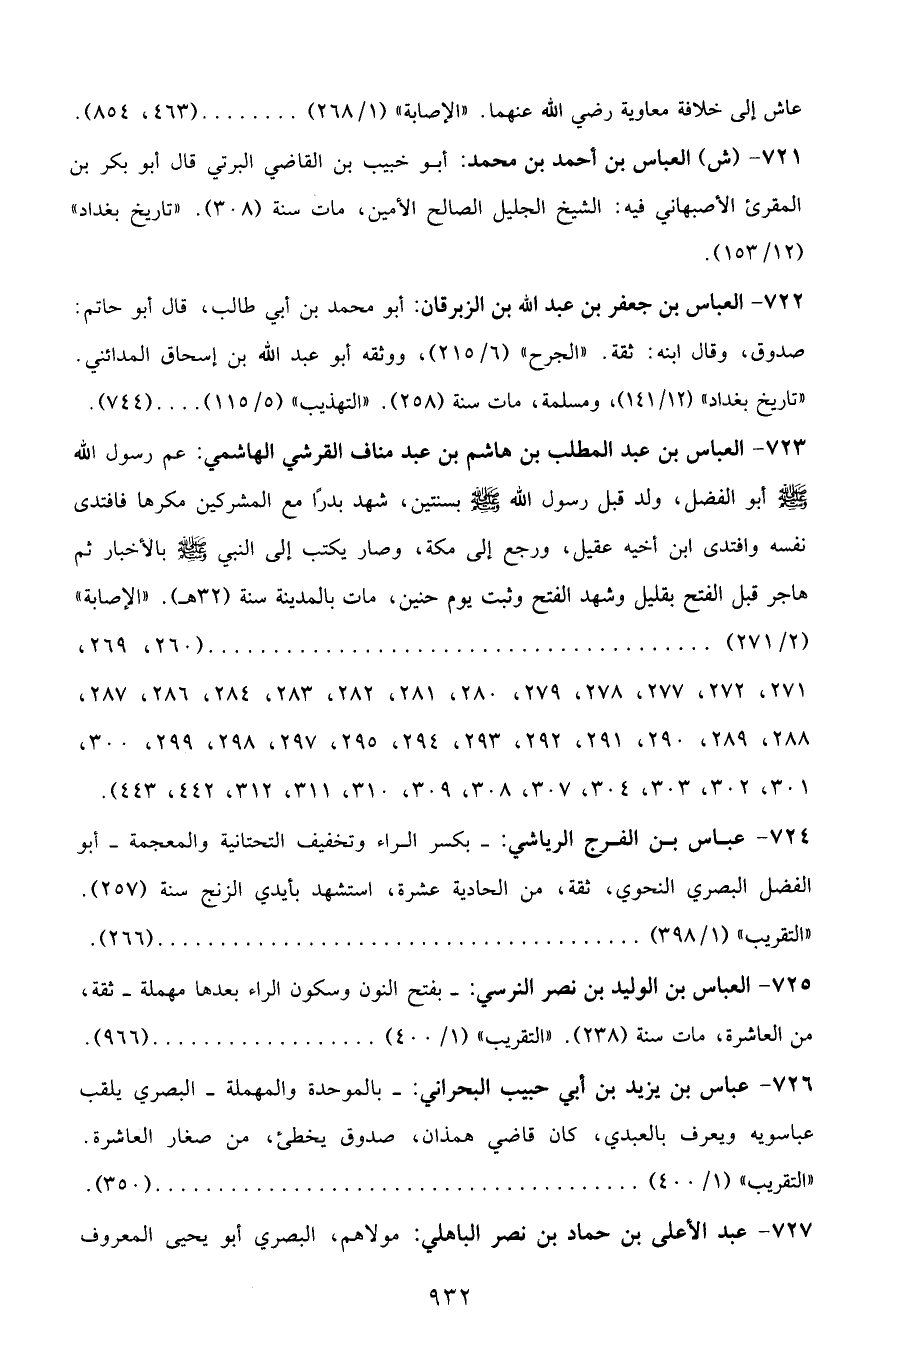 عاش إلى خلافة معاوية رضي الله عنهما. «الإصابة» (٢٦٨/١) ........(٤٦٣، ٨٥٤).
٧٢١- (ش) العباس بن أحمد بن محمد: أبو خبيب بن القاضي البرتي قال أبو بكر بن
المقرئ الأصبهاني فيه: الشيخ الجليل الصالح الأمين، مات سنة (٣٠٨). «تاريخ بغداد»
(١٥٣/١٢).
٧٢٢- العباس بن جعفر بن عبد الله بن الزبرقان: أبو محمد بن أبي طالب، قال أبو حاتم:
صدوق، وقال ابنه: ثقة. «الجرح» (٢١٥/٦)، ووثقه أبو عبد الله بن إسحاق المدائني.
«تاريخ بغداد» (١٤١/١٢)، ومسلمة، مات سنة (٢٥٨). «التهذيب» (١١٥/٥)....(٧٤٤).
٧٢٣- العباس بن عبد المطلب بن هاشم بن عبد مناف القرشي الهاشمي: عم رسول الله
ﷺ أبو الفضل، ولد قبل رسول الله ﷺ بسنتين، شهد بدرًا مع المشركين مكرها فافتدى
نفسه وافتدى ابن أخيه عقيل، ورجع إلى مكة، وصار يكتب إلى النبي ﷺ بالأخبار ثم
هاجر قبل الفتح بقليل وشهد الفتح وثبت يوم حنين، مات بالمدينة سنة (٣٢هـ). «الإصابة»
(٢٧١/٢) ........................................(٢٦٠، ٢٦٩،
٢٧١، ٢٧٢، ٢٧٧، ٢٧٨، ٢٧٩، ٢٨٠، ٢٨١، ٢٨٢، ٢٨٣، ٢٨٤، ٢٨٦، ٢٨٧،
٢٨٨، ٢٨٩، ٢٩٠، ٢٩١، ٢٩٢، ٢٩٣، ٢٩٤، ٢٩٥، ٢٩٧، ٢٩٨، ٢٩٩، ٣٠٠،
٣٠١، ٣٠٢، ٣٠٣، ٣٠٤، ٣٠٧، ٣٠٨، ٣٠٩، ٣١٠، ٣١١، ٣١٢، ٤٤٢، ٤٤٣).
٧٢٤- عباس بن الفرج الرياشي: ـ بكسر الراء وتخفيف التحتانية والمعجمة ـ أبو
الفضل البصري النحوي، ثقة، من الحادية عشرة، استشهد بأيدي الزنج سنة (٢٥٧).
«التقريب» (٣٩٨/١) .......................................(٢٦٦).
٧٢٥- العباس بن الوليد بن نصر النرسي: ـ بفتح النون وسكون الراء بعدها مهملة ـ ثقة،
من العاشرة، مات سنة (٢٣٨). «التقريب» (٤٠٠/١) ..................(٩٦٦).
٧٢٦- عباس بن يزيد بن أبي حبيب البحراني: ـ بالموحدة والمهملة ـ البصري يلقب
عباسويه ويعرف بالعبدي، كان قاضي همذان، صدوق يخطئ، من صغار العاشرة.
«التقريب» (٤٠٠/١) .......................................(٣٥٠).
٧٢٧- عبد الأعلى بن حماد بن نصر الباهلي: مولاهم، البصري أبو يحيى المعروف
٩٣٢